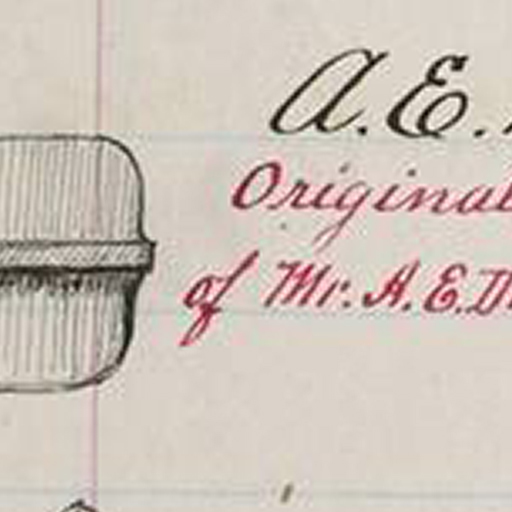 A. E.
Original
of Mr. A. E. D